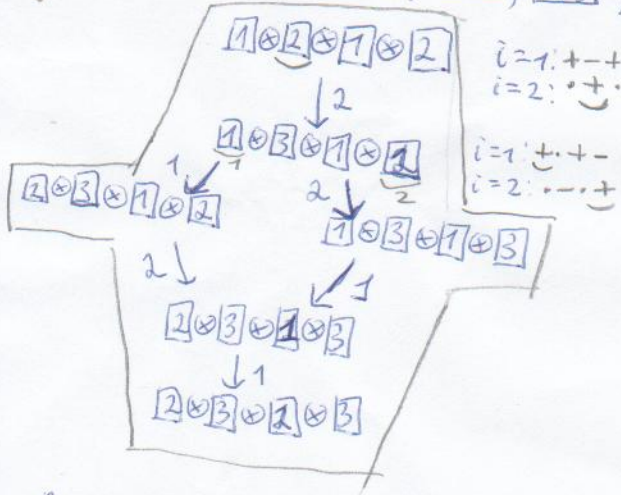 1 ⊗ 2 ⊗ 1 ⊗ 2
i=1: + - +
i=2: · + ·
2
1 ⊗ 3 ⊗ 1 ⊗ 2
1 2
i=1: + · + -
i=2: · - · +
1 2
2 ⊗ 3 ⊗ 1 ⊗ 2
1 ⊗ 3 ⊗ 1 ⊗ 3
2 1
2 ⊗ 3 ⊗ 1 ⊗ 3
1
2 ⊗ 3 ⊗ 2 ⊗ 3